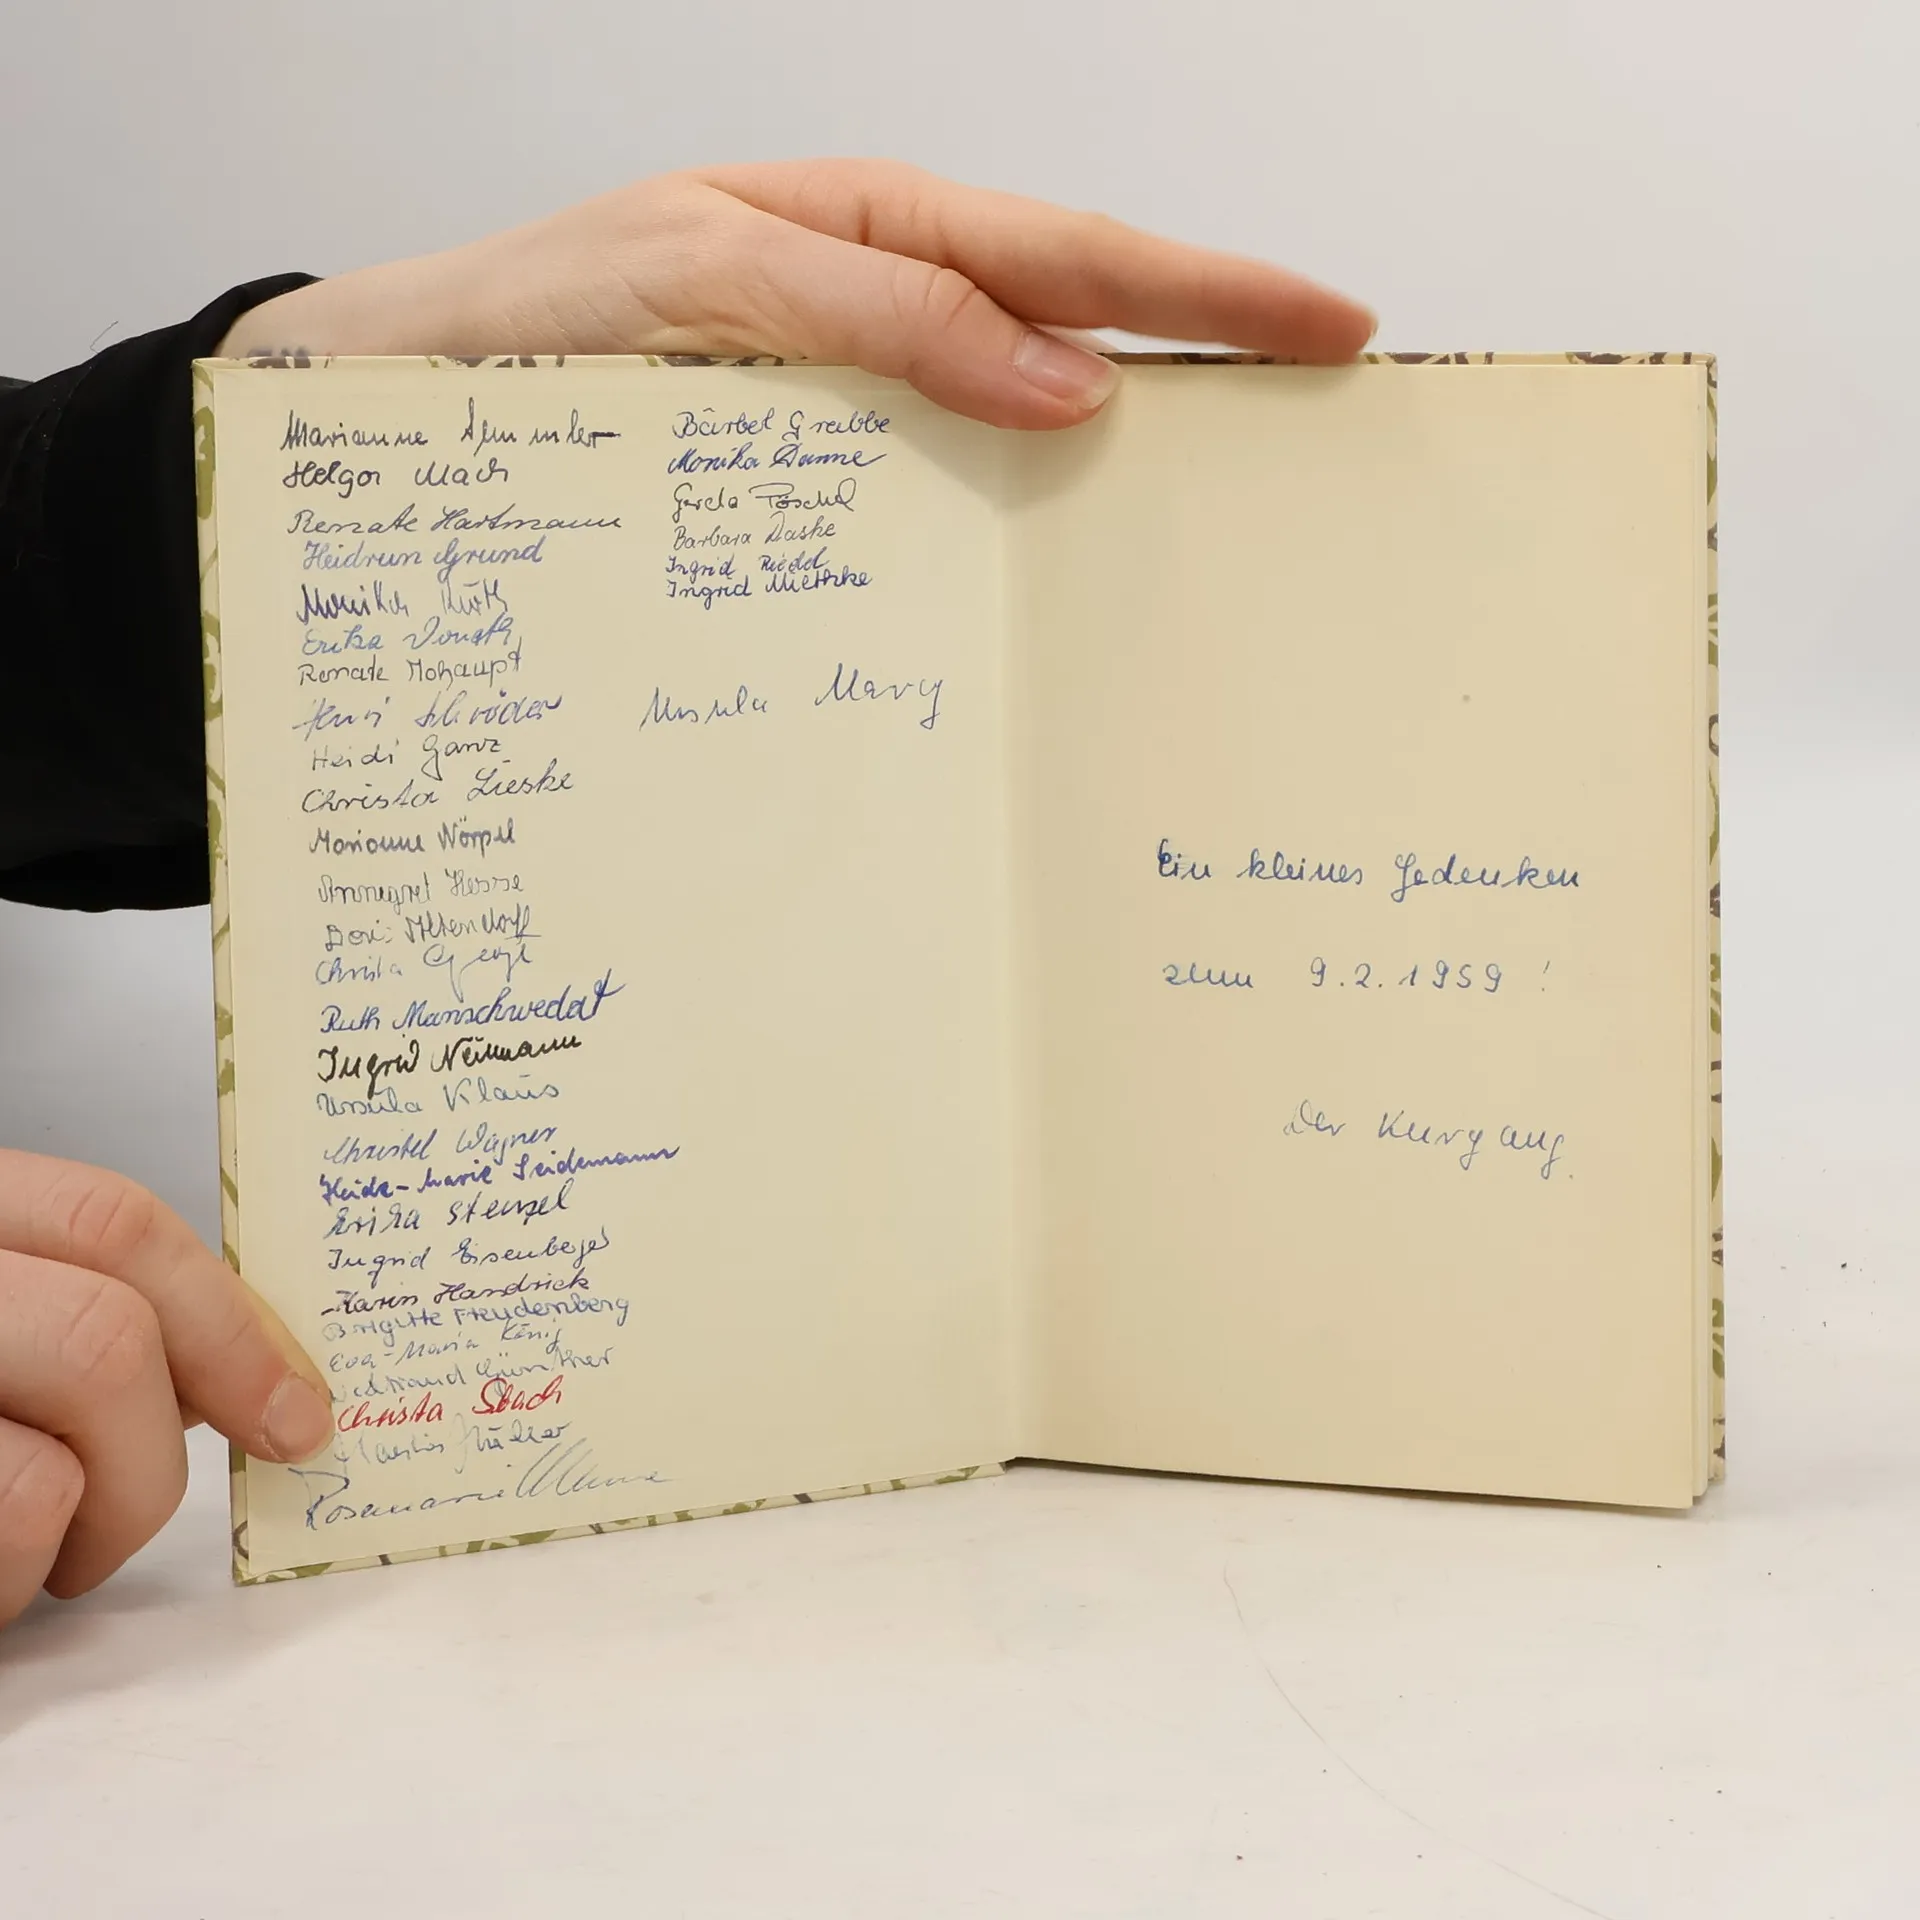 Marianne
Helga Mach
Renate Hartmann
Heidrun Grund
Monika
Erika Donath
Renate Mohaupt
Schröder
Heidi Ganz
Christa Lieske
Marianne Wörpel
Annegret Hesse
Doris Altendorff
Christa
Ruth Manschwedat
Ingrid Neumann
Ursula Klaus
Christel Wagner
Heide-Marie Seidemann
Erika Stenzel
Ingrid Eisenberger
Karin Handrick
Brigitte Freudenberg
Eva-Maria König
Günther
Christa
Rosemarie
Bärbel Grabbe
Monika Damme
Gerda Pöschel
Barbara Daske
Ingrid Riedel
Ingrid Miethke
Ursula
Ein kleines Gedenken
zum 9.2.1959!
Der Kurzgang.